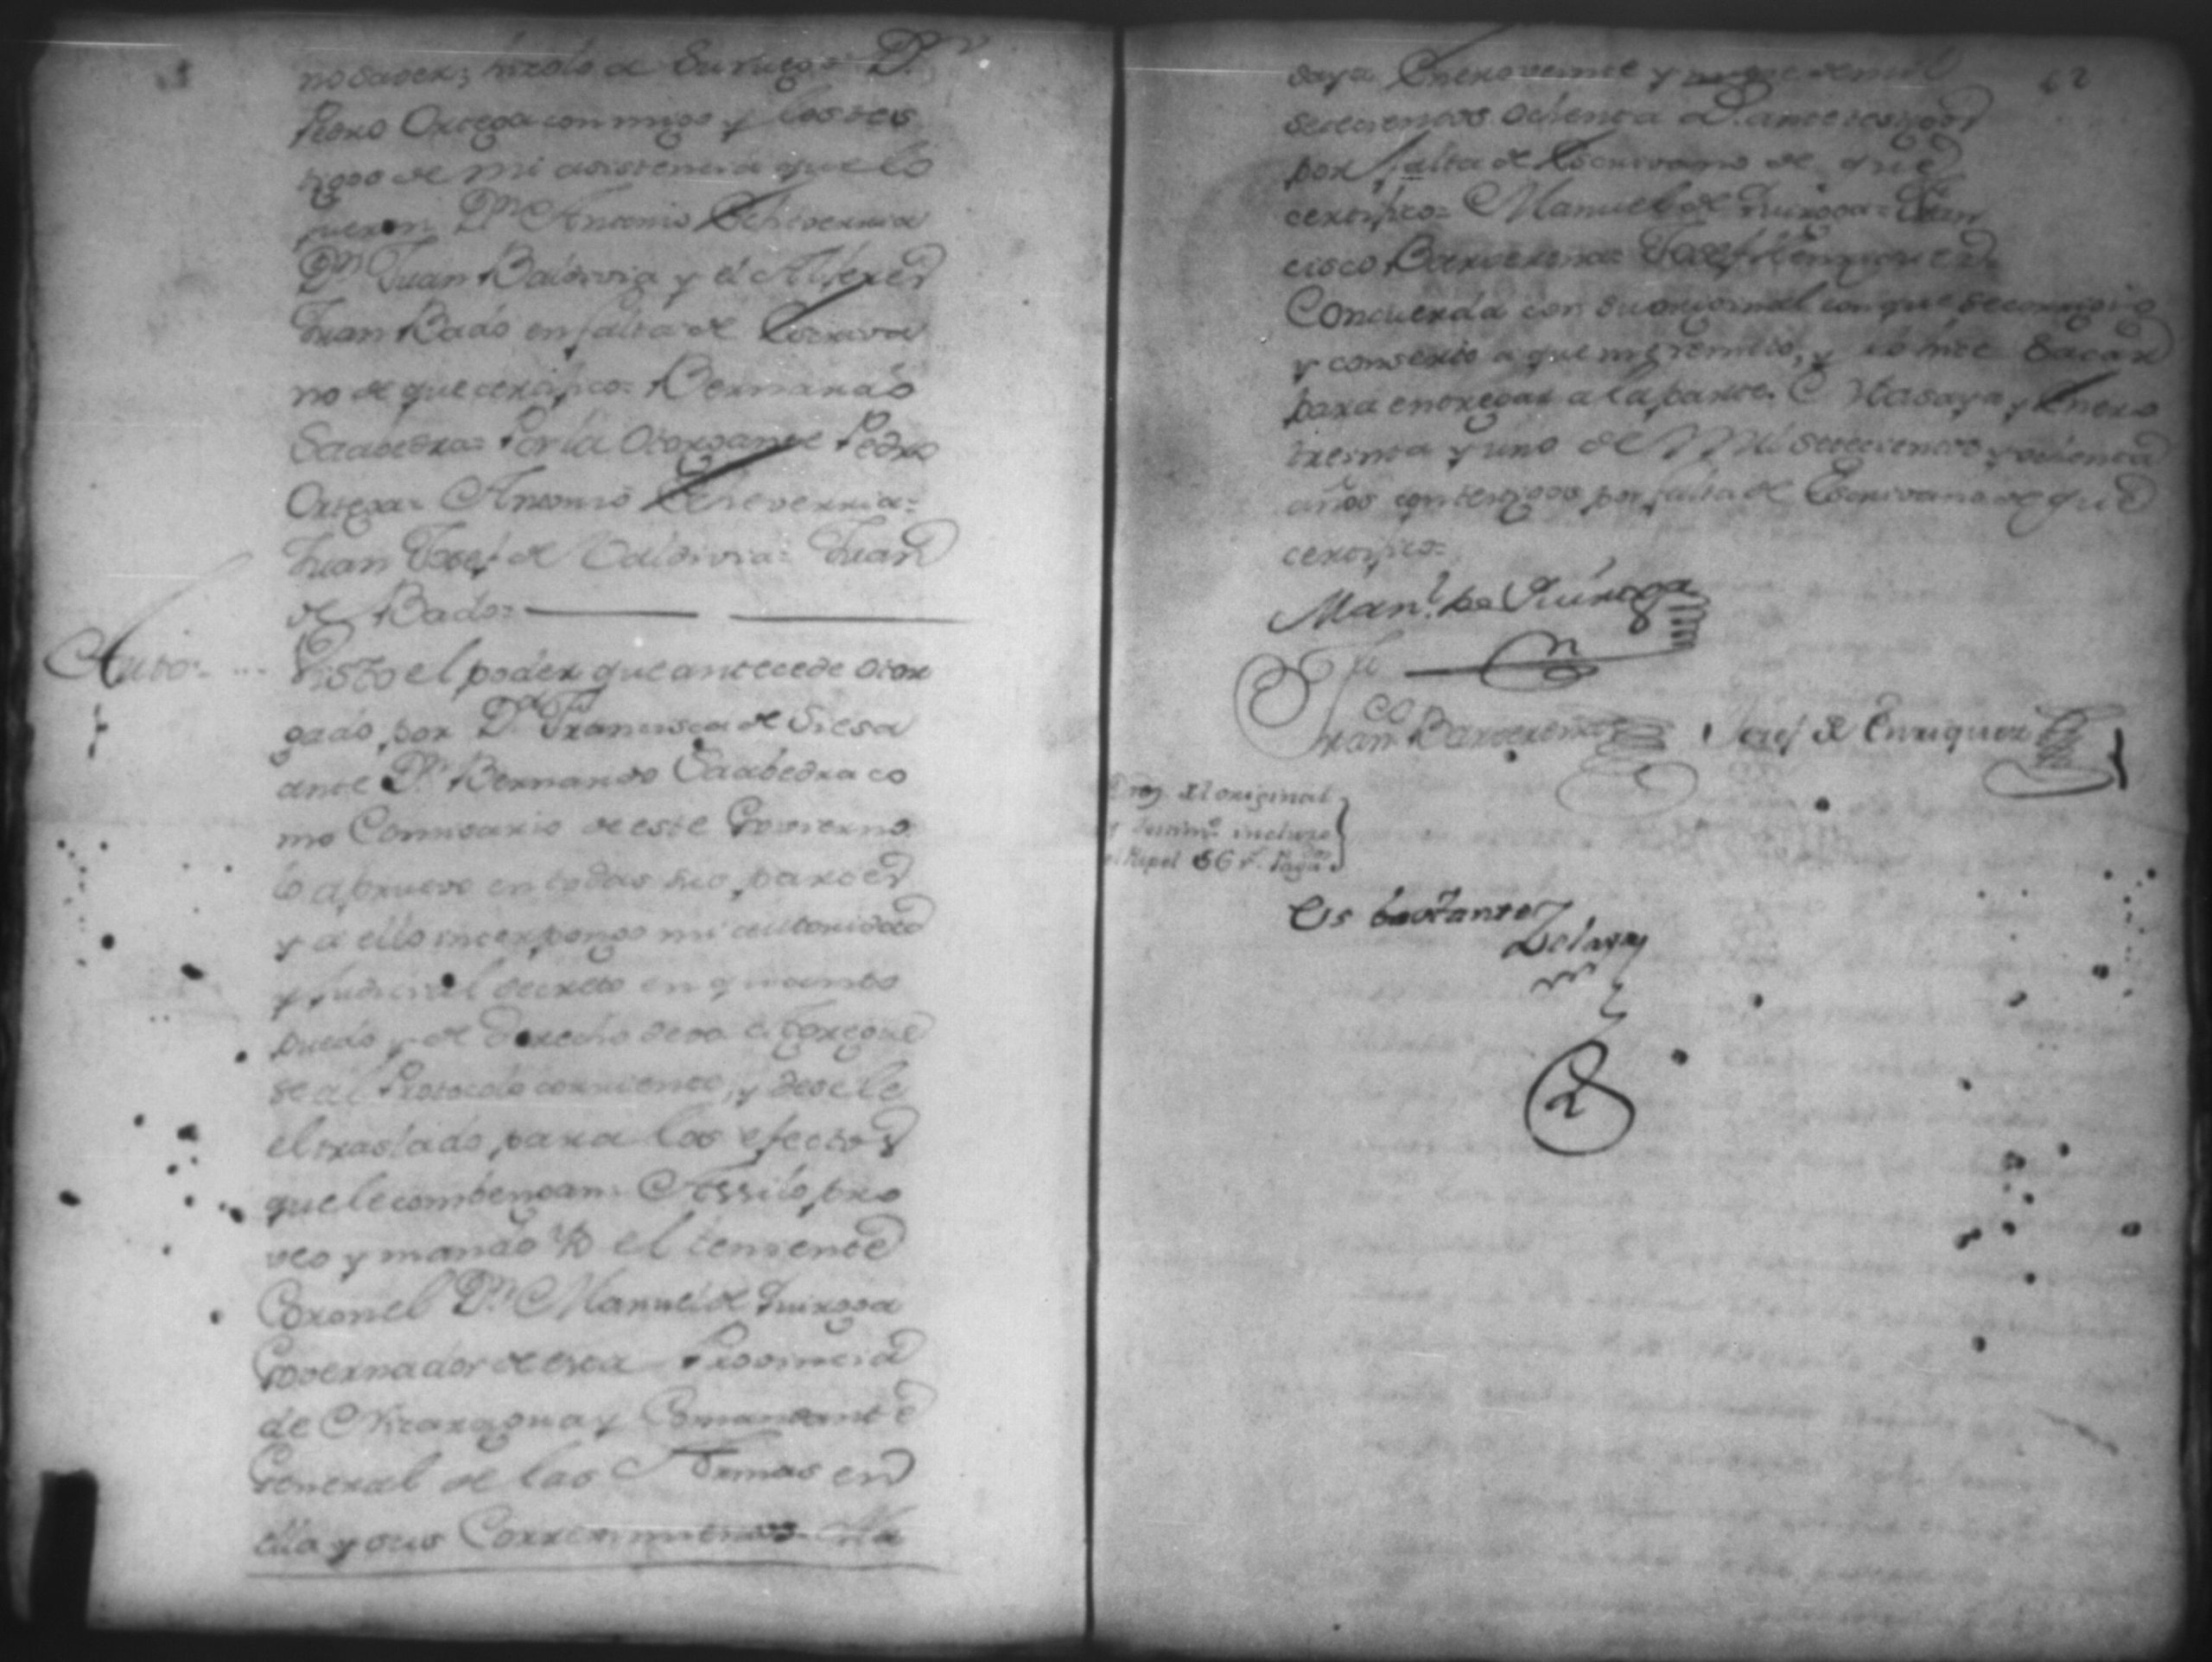 no saver; hizolo de su ruego Dn
Pedro Ortega conmigo y los tes
tigos de mi asistencia que lo
fueron Dn Antonio Echeverria
Dn Juan Baldivia y el Alferes
Juan Bado en falta de Escriva
no de que certifico = Bernardo
Saabedra = Por la Otorgante Pedro
Ortega = Antonio Echeverria =
Juan Josef de Valdivia = Juan
de Bado =
Auto = Visto el poder que antecede otor
gado por Da Francisca de
ante Dn Bernardo Saabedra co
mo Comisario de este Govierno
lo apruevo en todas sus partes
y a ello interpongo mi autoridad
y judicial decreto en quanto
puedo y de derecho devo
se al Protocolo corriente, y dese le
el traslado para los efectos
que le combengan. Assi lo pro
veo y mando Yo el teniente
Coronel Dn Manuel de Quiroga
Governador de esta Provincia
de Nicaragua y Comandante
General de las Armas en
ella y sus Corregimientos Ma
62
saya Enero veinte y nueve de mil
setecientos ochenta as. ante testigos
por falta de Escrivano de que
certifico = Manuel de Quiroga = Fran
cisco Barberena = Josef Enriquez =
Concuerda con su original con que se corrigió
y consertó a que me remito, y lo hice Sacar
para entregar a la parte. Masaya y Enero
treinta y uno de Mil setecientos y ochenta
años con testigos por falta de Escrivano de que
certifico =
Manl. de Quiroga
Franco Barverena Josef Enriquez
Dros. el original
y testimo. incluso
el Papel 56 rs.
Es bastante